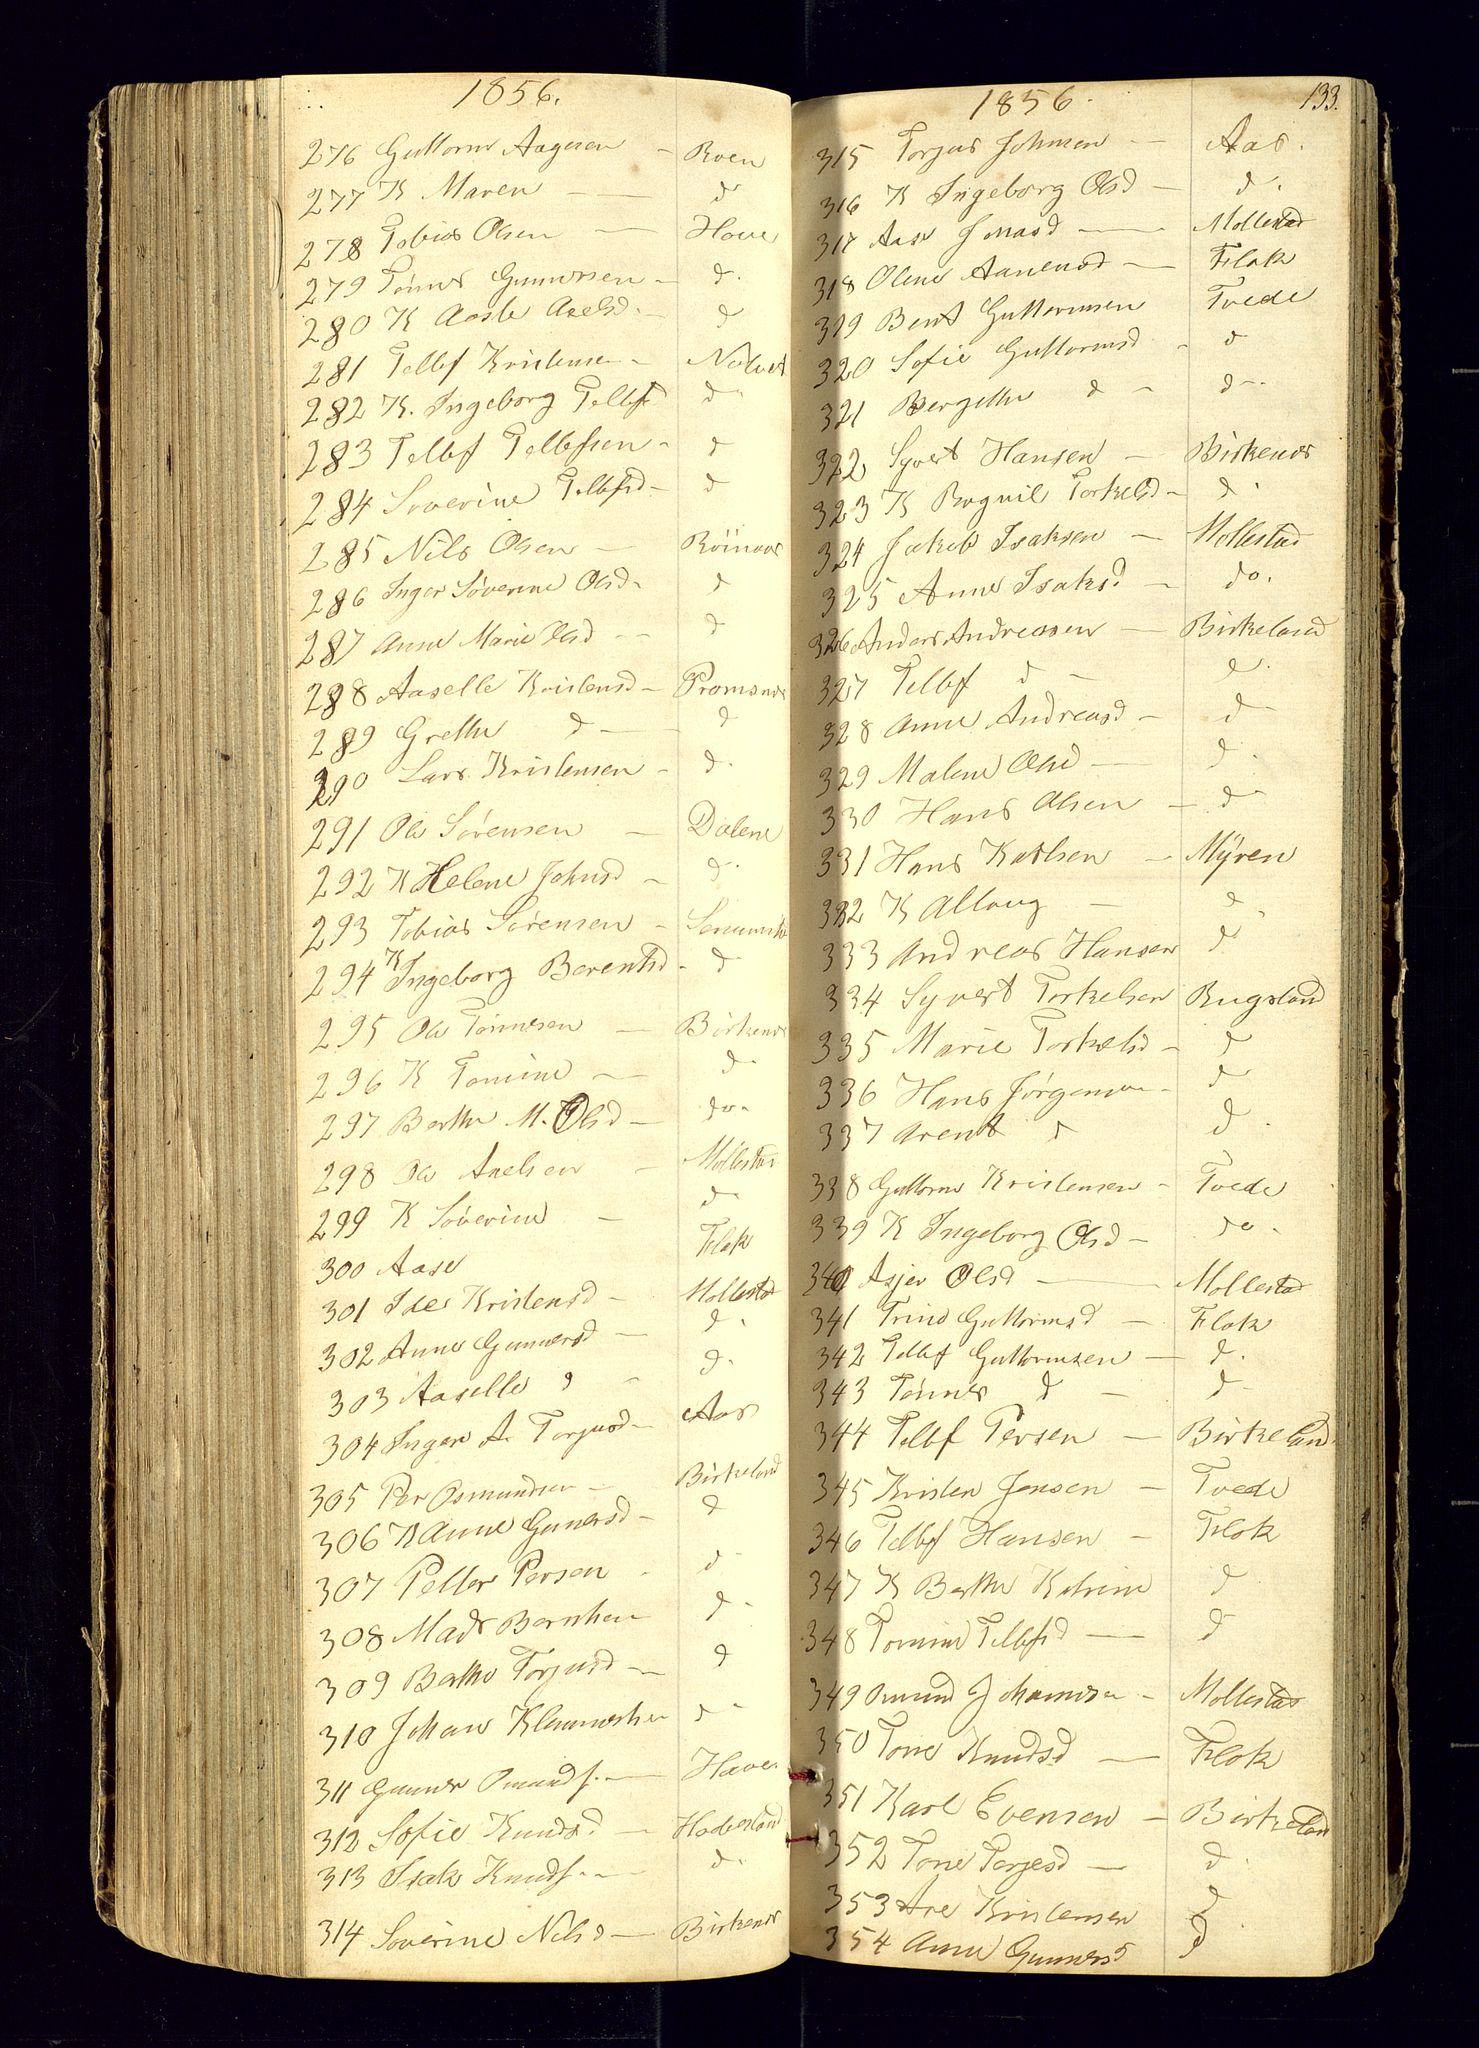 1856.
276 Guttorm Aagesen - Roen
277 K Maren - d
278 Tobias Olsen - Hove
279 Tönnes Gunnersen - d.
280 K Aasle Axelsd. - d
281 Tellef Kristensen -
282 K. Ingeborg Tellefs d
283 Tellef Tellefsen - d
284 Severine Tellefsd - d
285 Nils Olsen -
286 Inger Söverine Olsd. d
287 Anne Marie Olsd - d
288 Aaselle Kristensd - Tromsnes
289 Grethe d - d
290 Lars Kristensen - d.
291 Ole Sörensen - Dalene
292 K Helene Johnsd - d.
293 Tobias Sörensen -
294 K Ingeborg Berentsd - d
295 Ole Tönnesen - Birkenes
296 K Tomine - d
297 Berthe M. Olsd - do.
298 Ole Axelsen - Mollestad
299 K Söverine - d
300 Aase Flak
301 Ides Kristensd - Mollestad
302 Anne Gunnersd - d.
303 Aaselle d - d.
304 Inger A. Torjusd - Aas
305 Per Osmundsen - Birkeland
306 K Anne Gunersd - d
307 Petter Persen - d
308 Mads Bernhen d
309 Berthe Torjusd - d
310 Johan d
311 Gunner Omunds. - Haves
312 Sofie Knudsd - Haberland
313 Isak Knuds. - d
314 Soverine Nilsd - Birkenes
1856. 133.
315 Torjus Johnsen - Aas.
316 K Ingeborg Olsd - d.
317 Aase Jonasd - Mollestad
318 Olene Aanensd - Flak
319 Bent Guttormsen Tvede
320 Sofie Guttormsd - d
321 Bergethe d - d.
322 Syvert Hansen - Birkenes
323 K Rognil Torkelsd - d.
324 Jakob Isaksen - Mollestad
325 Anne Isaksd - do.
326 Anders Andreasen - Birkeland
327 Tellef d - d.
328 Anne Andreasd - d
329 Malene Olsd - d
330 Hans Olsen - d
331 Hans Karlsen - Myren
332 K Allaug - d
333 Andreas Hansen d
334 Syvert Torkelsen Rugsland
335 Marie Torkelsd - d
336 Hans Jörgensen - d
337 Arent d d.
338 Guttorm Kristensen - Tvede
339 K Ingeborg Olsd - do.
340 Asjer Olsd - Mollestad
341 Trine Guttormsd - Flak
342 Tellef Guttormsen - d.
343 Tönnes d - d
344 Tellef Persen - Birkeland
345 Kristen Jensen - Tvede
346 Tellef Hansen - Flak
347 K Berthe Katrine d
348 Tomine Tellefsd - d
349 Omund Johannesen - Mollestad
350 Tone Knudsd - Flak
351 Karl Evensen - Birkeland
352 Tone Terjesd - d.
353 Are Kristensen d
354 Anne Gunnersd d